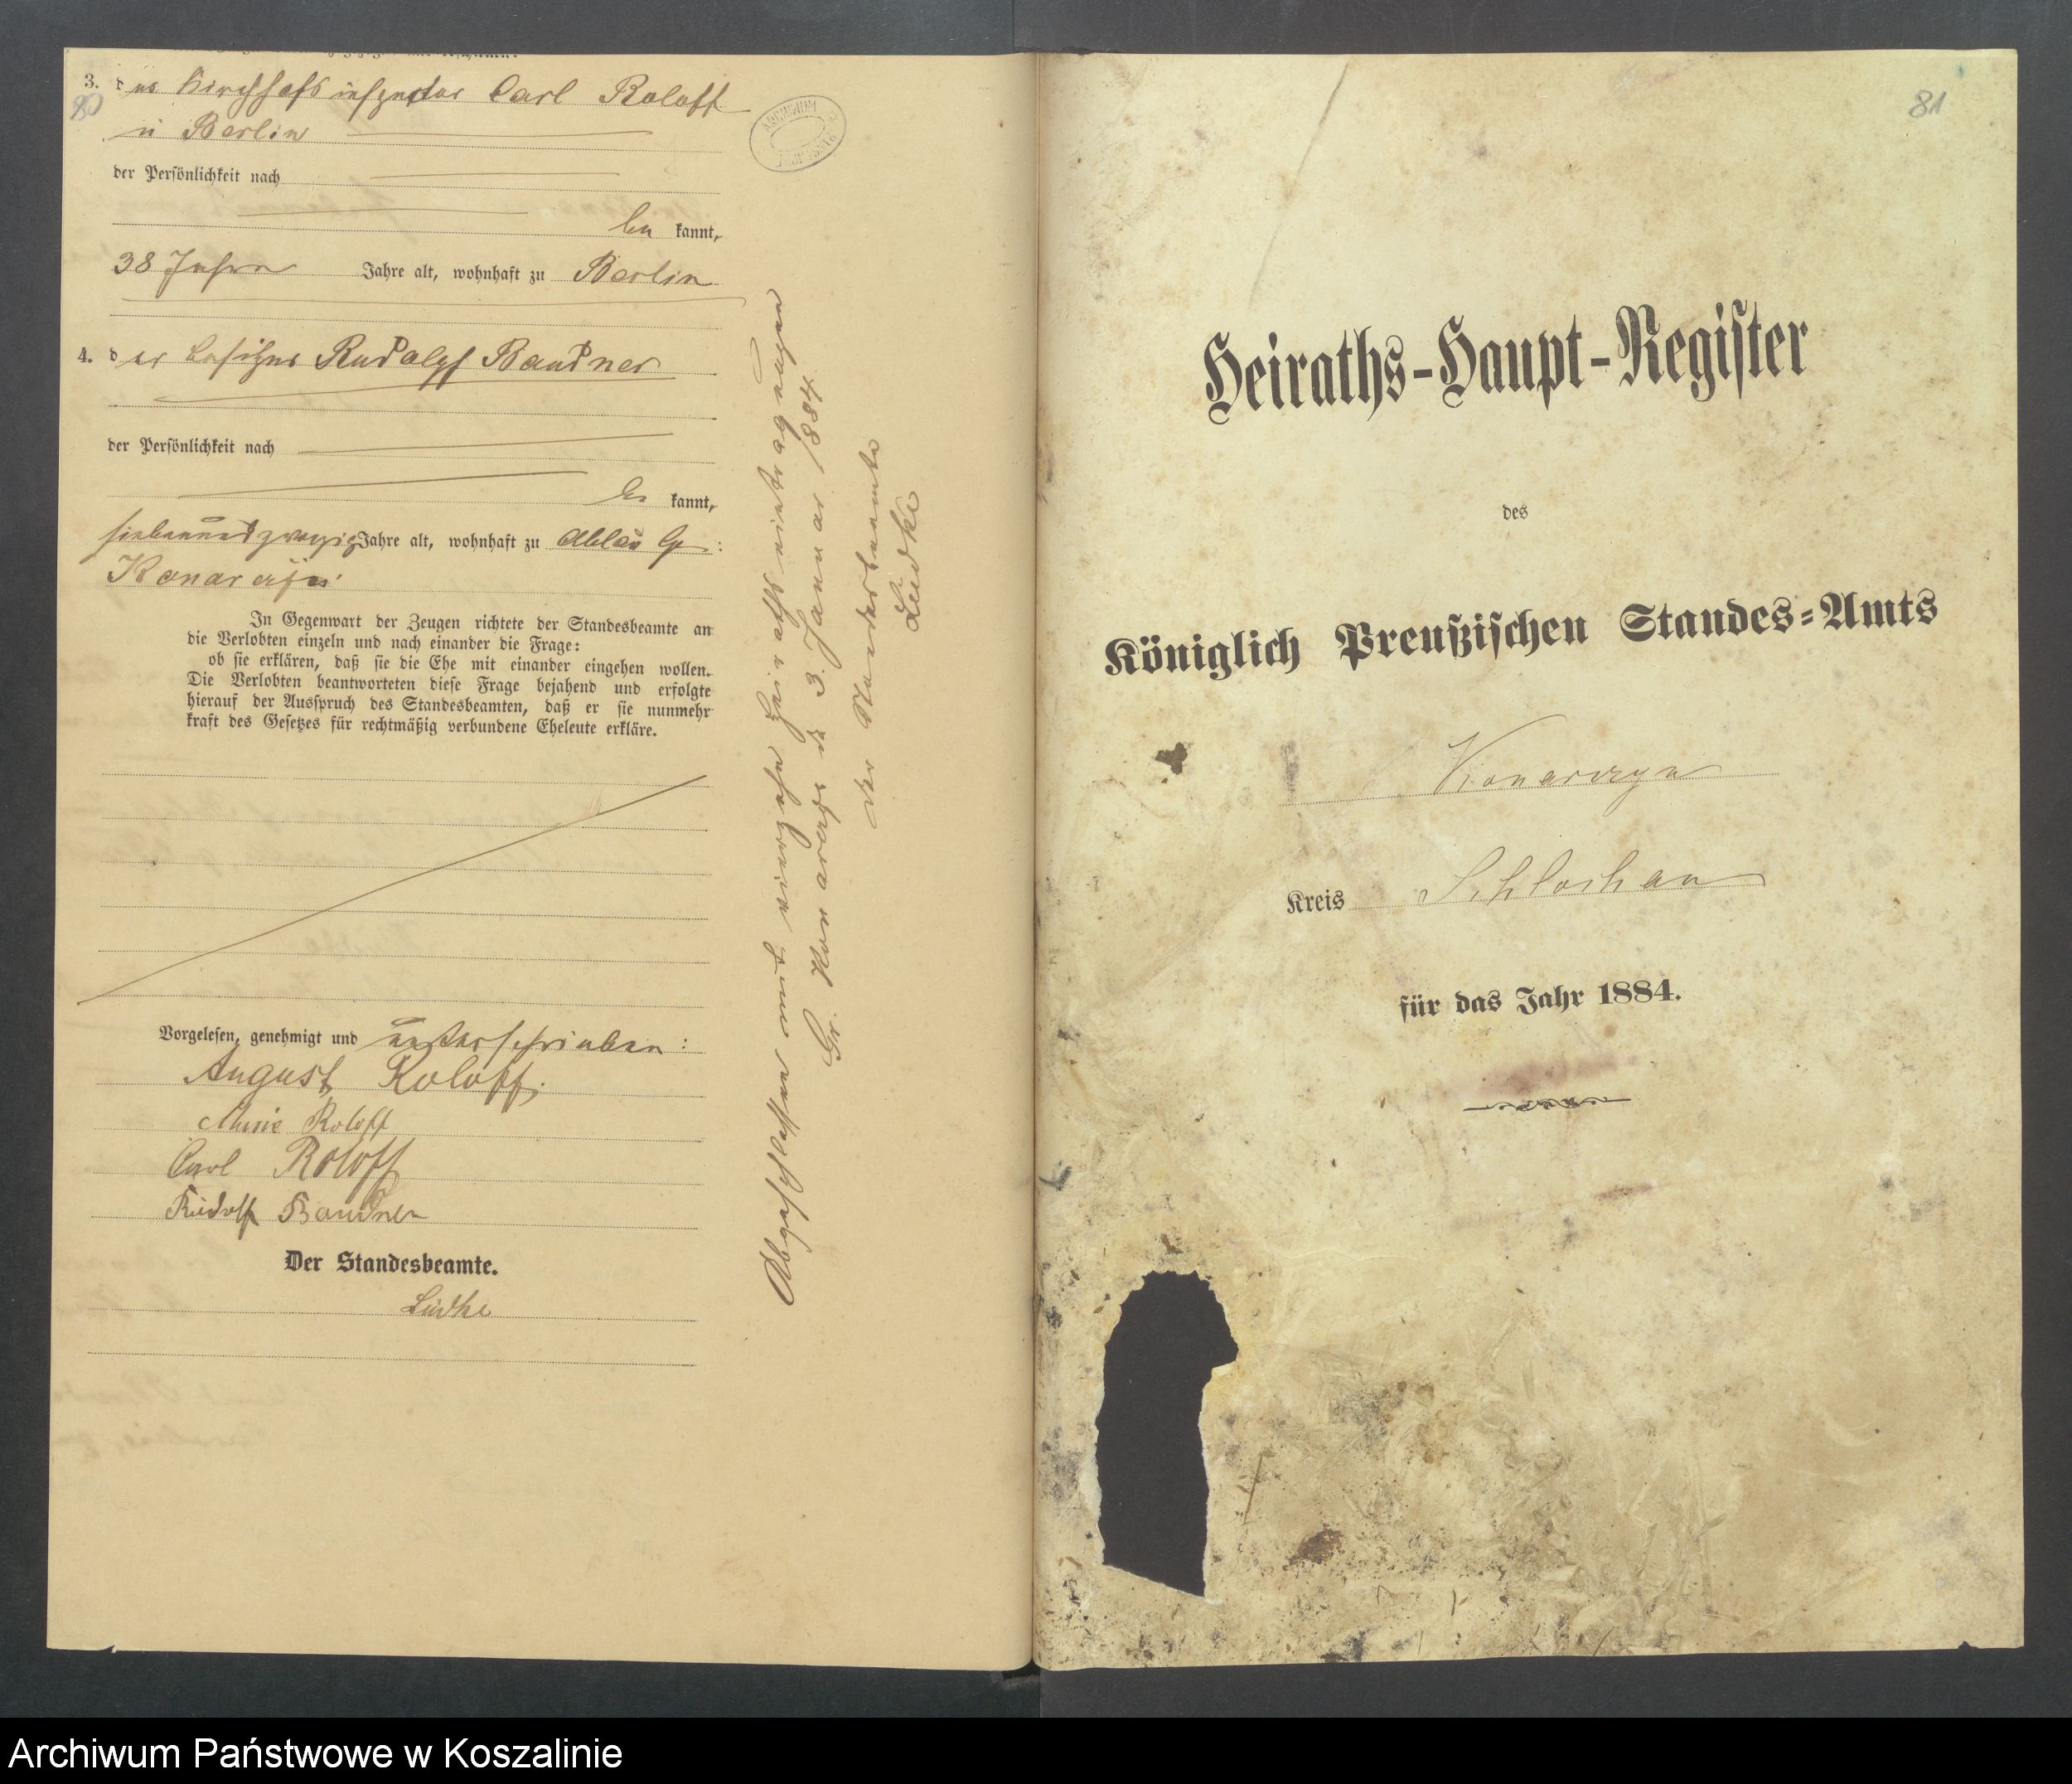 3. der Kirchhofsinspector Carl Roloff
in Berlin
der Persönlichkeit nach
be kannt,
38 Jahre Jahre alt, wohnhaft zu Berlin
4. der Besitzer Rudolph Baudner
der Persönlichkeit nach
be kannt,
siebenundzwanzig Jahre alt, wohnhaft zu Abbau Gr:
Konarczyn
In Gegenwart der Zeugen richtete der Standesbeamte an
die Verlobten einzeln und nach einander die Frage:
ob sie erklären, daß sie die Ehe mit einander eingehen wollen.
Die Verlobten beantworteten diese Frage bejahend und erfolgte
hierauf der Ausspruch des Standesbeamten, daß er sie nunmehr
kraft des Gesetzes für rechtmäßig verbundene Eheleute erkläre.
Vorgelesen, genehmigt und unterschrieben:
August Roloff.
Marie Roloff
Carl Roloff
Rudolf Baudner
Der Standesbeamte.
Lüdke
Abgeschlossen mit vierzehn Heirathseintragungen
Gr. Konarczyn d. 3. Januar 1884.
Der Standesbeamte
Lüdke
81
Heiraths-Haupt-Register
des
Königlich Preußischen Standes-Amts
Konarczyn
Kreis Schlochau
für das Jahr 1884.
Archiwum Państwowe w Koszalinie